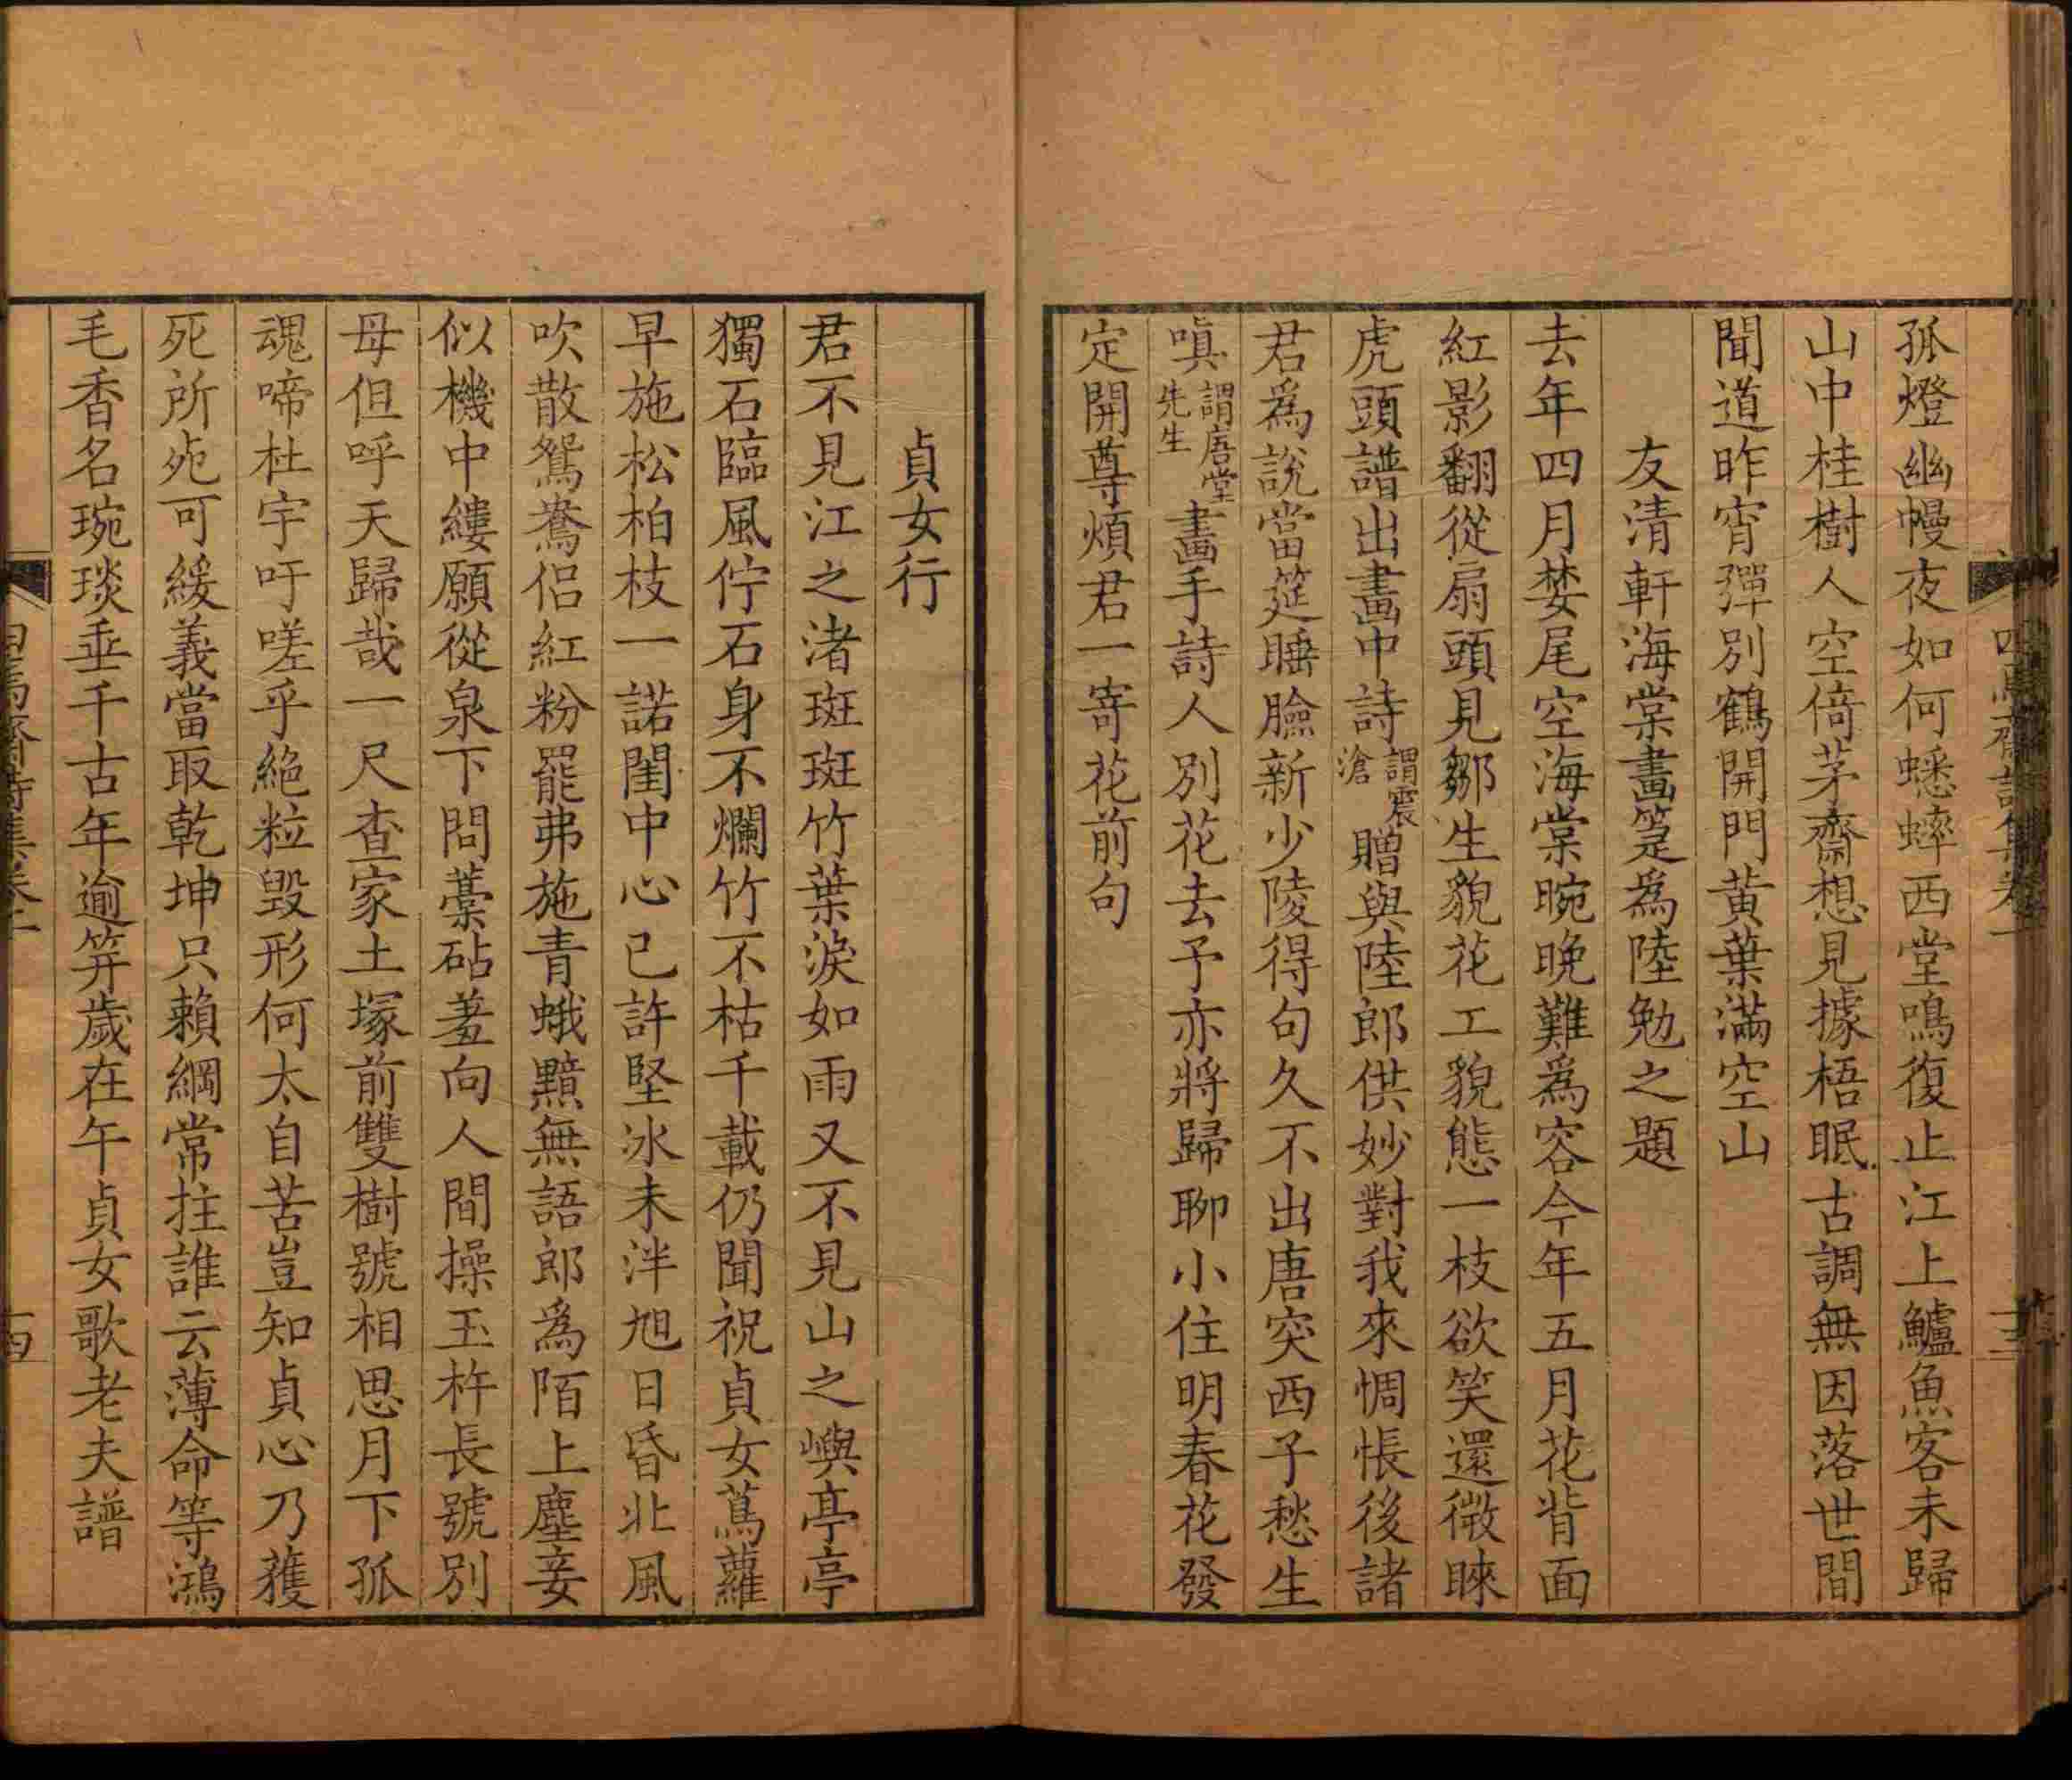 孤燈幽幔夜如何蟋蟀西堂鳴復止江上鱸魚客未歸
山中桂樹人空倚茅齋想見據梧眠古調無因落世間
聞道昨宵彈別鶴開門黃葉滿空山
友清軒海棠畫箑爲陸勉之題
去年四月婪尾空海棠晼晚難爲容今年五月花背面
紅影翻從扇頭見鄒生貌花工貌態一枝欲笑還微睞
虎頭譜出畫中詩謂震滄贈與陸郎供妙對我來惆悵後諸
君爲說當筵睡臉新少陵得句久不出唐突西子愁生
嗔謂唐堂先生畫手詩人別花去予亦將歸聊小住明春花發
定開尊煩君一寄花前句
貞女行
君不見江之渚斑斑竹葉淚如雨又不見山之嶼亭亭
獨石臨風佇石身不爛竹不枯千載仍聞祝貞女蔦蘿
早施松柏枝一諾閨中心已許堅冰未泮旭日昏北風
吹散鴛鴦侶紅粉罷弗施青蛾黯無語郎爲陌上塵妾
似機中縷願從泉下問藁砧羞向人間操玉杵長號別
母但呼天歸哉一尺查家土塚前雙樹號相思月下孤
魂啼杜宇吁嗟乎絕粒毀形何太自苦豈知貞心乃獲
死所死可緩義當取乾坤只賴綱常拄誰云薄命等鴻
毛香名琬琰垂千古年逾笄歲在午貞女歌老夫譜
四焉齋詩集卷二